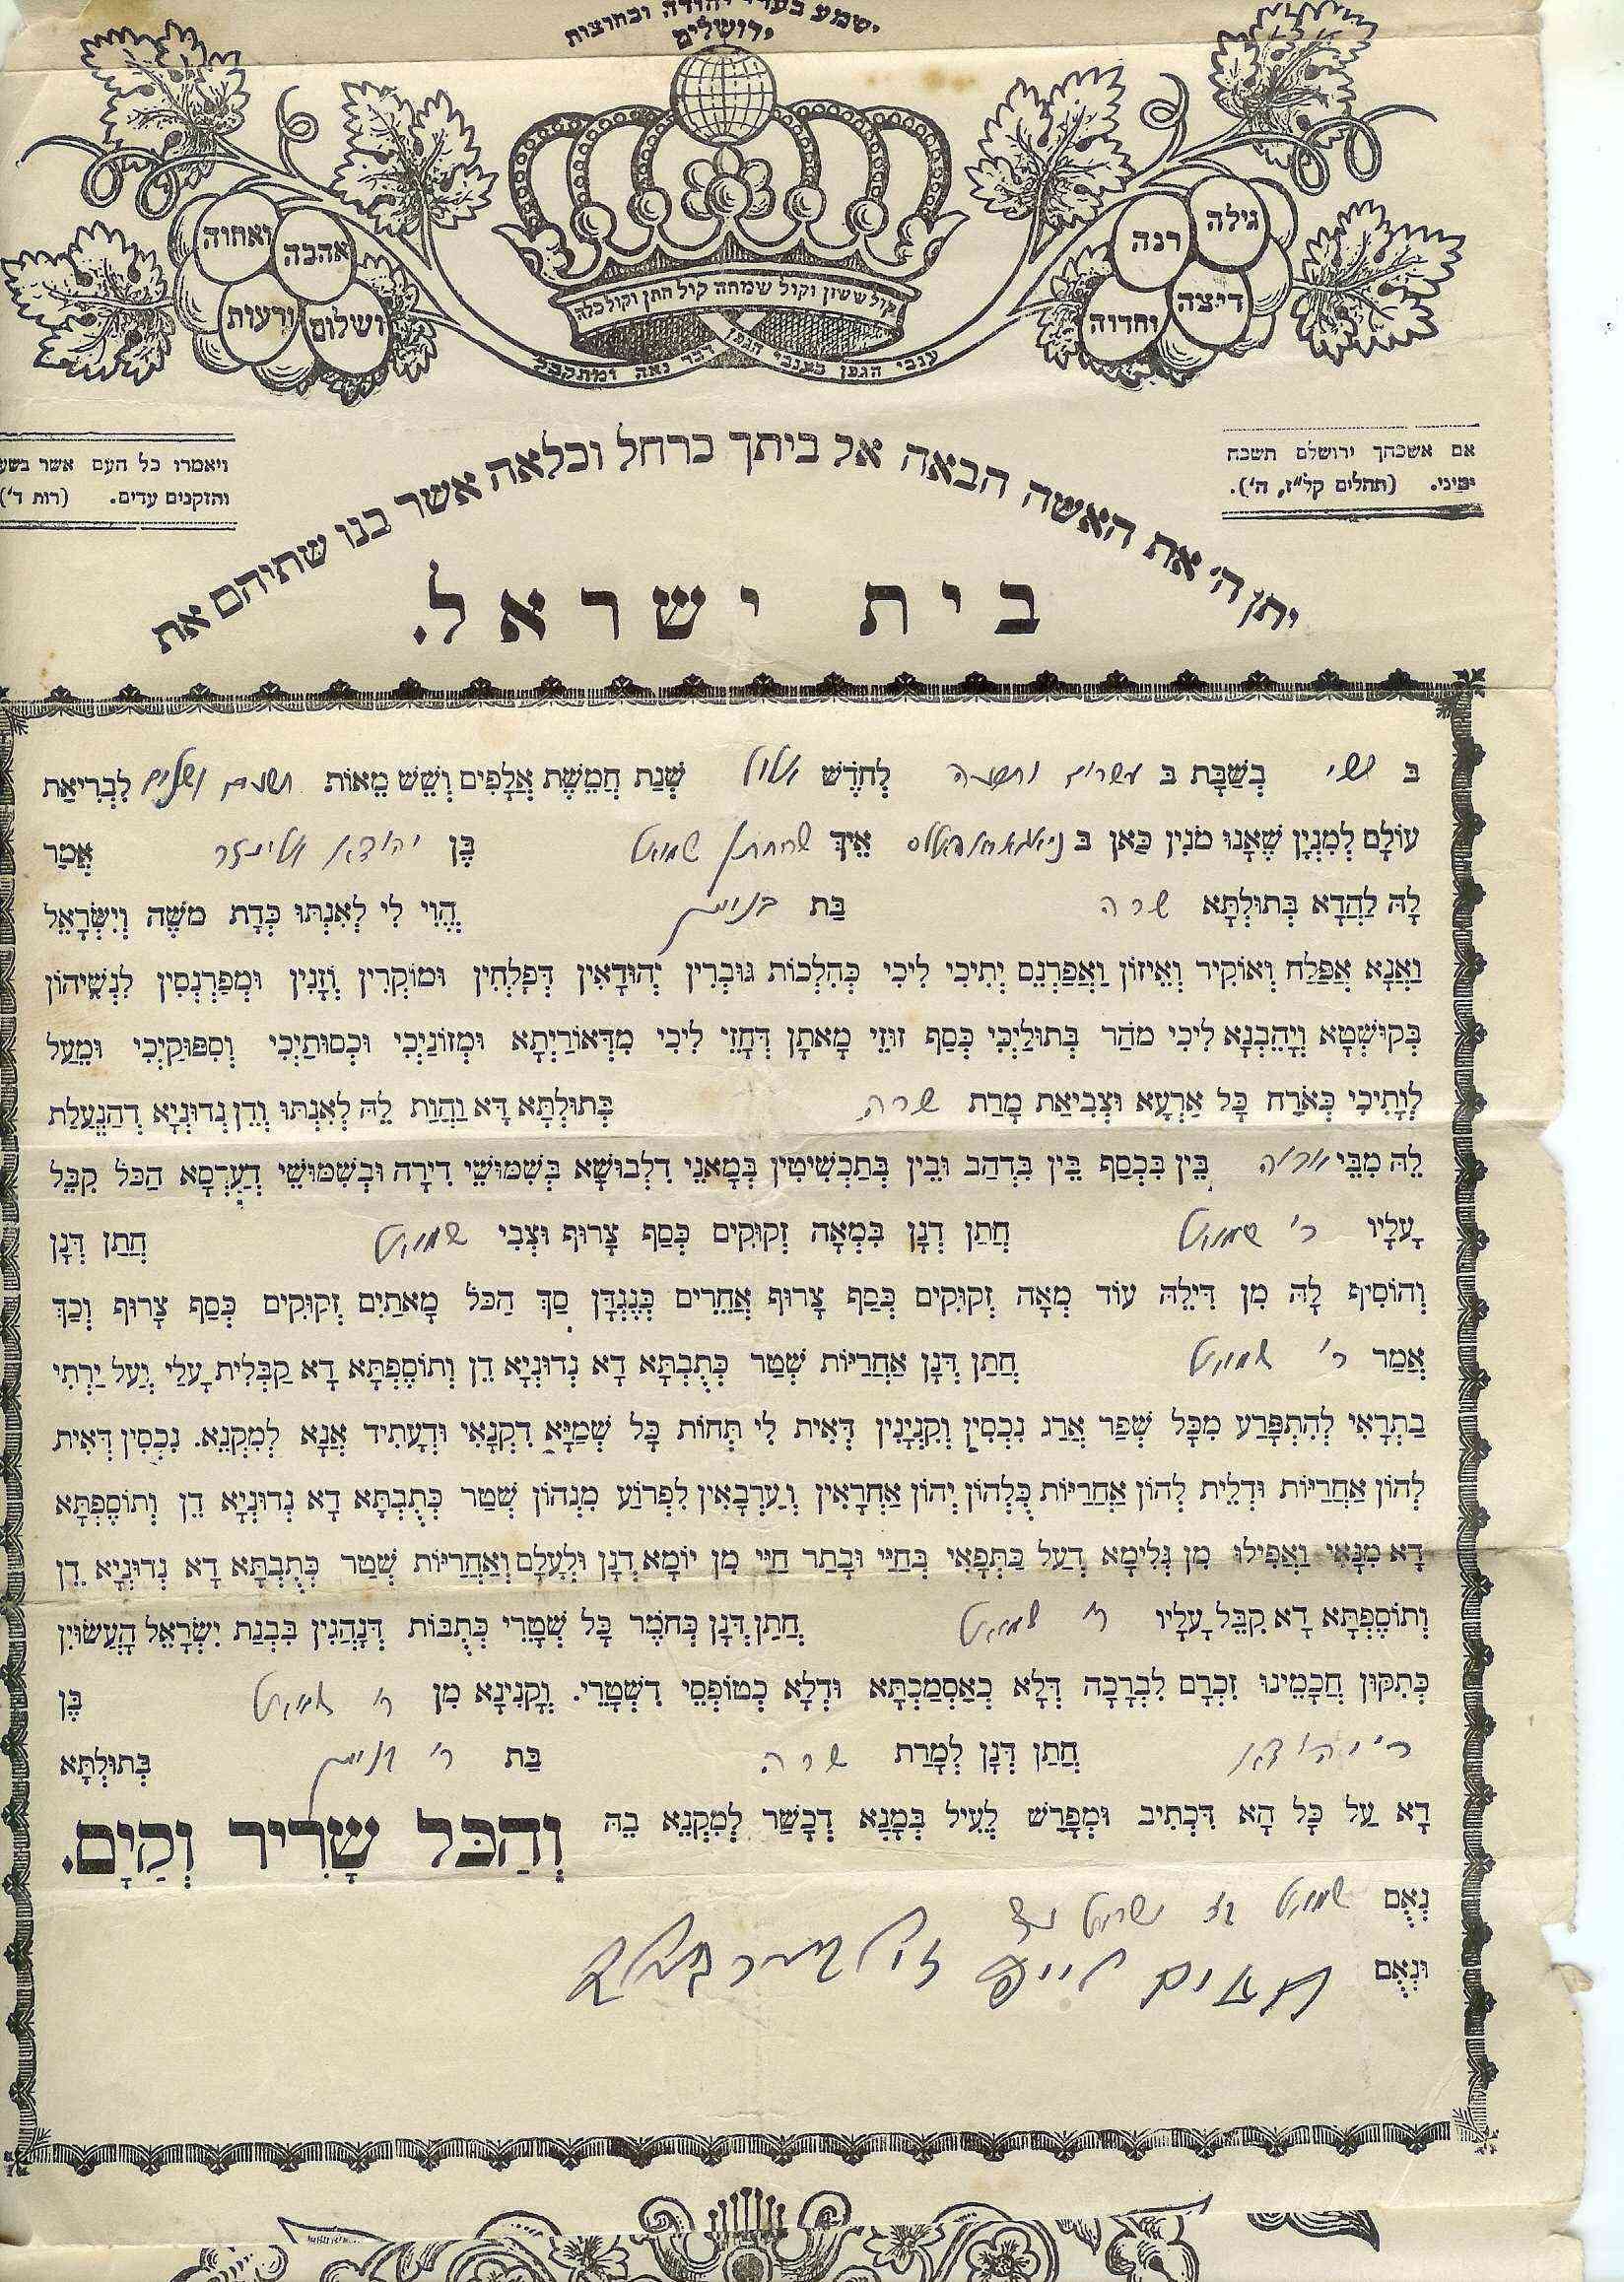 ישמע בערי יהודה ובחוצות
ירושלים
ואחוה
אהבה
ורעות
ושלום
גילה
רנה
דיצה
וחדוה
קול ששון וקול שמחה קול חתן וקול כלה
ענבי הגפן בענבי הגפן דבר נאה ומתקבל
אם אשכחך ירושלם תשכח
ימיני. (תהלים קל"ז, ה').
ויאמרו כל העם אשר בשע
והזקנים עדים. (רות ד')
יתן ה' את האשה הבאה אל ביתך כרחל וכלאה אשר בנו שתיהם את
בית ישראל.
בּ ששי בְּשַׁבָּת בּ עשרים ותשעה לְחֹדֶשׁ אלול שְׁנַת חֲמֵשֶׁת אֲלָפִים וְשֵׁשׁ מֵאוֹת תשעים ושלש לִבְרִיאַת
עוֹלָם לְמִנְיָן שֶׁאָנוּ מוֹנִין כַּאן בּ אֵיךְ שהחתן שמואל בֶּן יהודא אליעזר אֲמַר
לָהּ לַהֲדָא בְּתוּלְתָּא שרה בַּת בנימין הֱוִי לִי לְאִנְתּוּ כְּדָת מֹשֶׁה וְיִשְׂרָאֵל
וַאֲנָא אֶפְלַח וְאוֹקִיר וְאֵיזוֹן וַאֲפַרְנֵס יְתִיכִי לִיכִי כְּהִלְכוֹת גּוּבְרִין יְהוּדָאִין דְּפָלְחִין וּמוֹקְרִין וְזָנִין וּמְפַרְנְסִין לִנְשֵׁיהוֹן
בְּקוּשְׁטָא וְיָהֵבְנָא לִיכִי מֹהַר בְּתוּלַיְכִי כְּסַף זוּזֵי מָאתָן דְּחָזֵי לִיכִי מִדְּאוֹרַיְתָא וּמְזוֹנַיְכִי וּכְסוּתַיְכִי וְסִפּוּקַיְכִי וּמֵעַל
לְוָתֵיכִי כְּאֹרַח כָּל אַרְעָא וּצְבִיאַת מָרַת שרה בְּתוּלְתָּא דָּא וַהֲוַת לֵהּ לְאִנְתּוּ וְדֵן נְדוּנְיָא דְהַנְעֲלַת
לֵהּ מִבֵּי אביה בֵּין בִּכְסַף בֵּין בִּדְהַב וּבֵין בְּתַכְשִׁיטִין בְּמָאנֵי דִלְבוּשָׁא בְּשִׁמּוּשֵׁי דִירָה וּבְשִׁמּוּשֵׁי דְעַרְסָא הַכֹּל קִבֵּל
עָלָיו ר' שמואל חֲתַן דְּנָן בִּמְאָה זְקוּקִים כֶּסֶף צָרוּף וּצְבִי שמואל חֲתַן דְּנָן
וְהוֹסִיף לָהּ מִן דִּילֵהּ עוֹד מְאָה זְקוּקִים כֶּסֶף צָרוּף אֲחֵרִים כְּנֶגְדָּן סַךְ הַכֹּל מָאתַיִם זְקוּקִים כֶּסֶף צָרוּף וְכַךְ
אֲמַר ר' שמואל חֲתַן דְּנָן אַחֲרַיּוּת שְׁטַר כְּתֻבְתָּא דָּא נְדוּנְיָא דֵן וְתוֹסֶפְתָּא דָא קַבְּלִית עָלַי וְעַל יַרְתִי
בַתְרָאִי לְהִתְפָּרַע מִכָּל שְׁפַר אֲרַג נִכְסִין וְקִנְיָנִין דְּאִית לִי תְּחוֹת כָּל שְׁמַיָּא דִקְנָאִי וּדְעָתִיד אֲנָא לְמִקְנֵא. נִכְסִין דְּאִית
לְהוֹן אַחֲרַיּוּת וּדְלֵית לְהוֹן אַחֲרַיּוּת כֻּלְּהוֹן יְהוֹן אַחְרָאִין וְעַרְבָאִין לִפְרוֹעַ מִנְּהוֹן שְׁטַר כְּתֻבְתָּא דָא נְדוּנְיָא דֵן וְתוֹסֶפְתָּא
דָא מִנָּאִי וַאֲפִילוּ מִן גְּלִימָא דְעַל כַּתְפָּאִי בְּחַיַּי וּבָתַר חַיַּי מִן יוֹמָא דְנָן וּלְעָלַם וְאַחֲרַיּוּת שְׁטַר כְּתֻבְתָּא דָא נְדוּנְיָא דֵן
וְתוֹסֶפְתָּא דָא קִבֵּל עָלָיו ר' שמואל חֲתַן דְּנָן כְּחֹמֶר כָּל שְׁטָרֵי כְּתֻבּוֹת דְּנָהֲגִין בִּבְנַת יִשְׂרָאֵל הָעֲשׂוּיִן
כְּתִקּוּן חֲכָמֵינוּ זִכְרָם לִבְרָכָה דְּלָא כְאַסְמַכְתָּא וּדְלָא כְטוֹפְסֵי דִשְׁטָרֵי. וְקָנִינָא מִן ר' שמואל בֶּן
ר' יהודא חֲתַן דְּנָן לְמָרַת שרה בַּת ר' בנימין בְּתוּלְתָּא
דָא עַל כָּל הָא דִּכְתִיב וּמְפָרַשׁ לְעֵיל בְּמָנָא דְכָשַׁר לְמִקְנֵא בֵהּ וְהַכֹּל שָׁרִיר וְקַיָּם.
נְאֻם שמואל בן ישראל
וּנְאֻם חיים